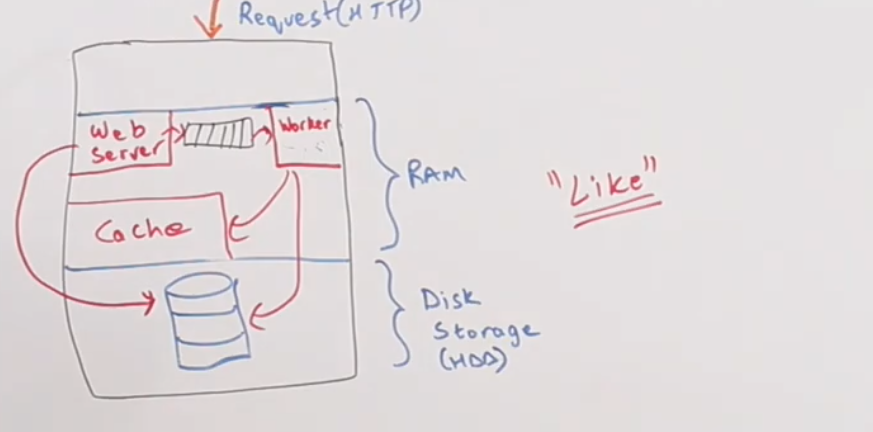 Request(HTTP)
Web
Server
Worker
RAM
"Like"
Cache
Disk
Storage
(HDD)